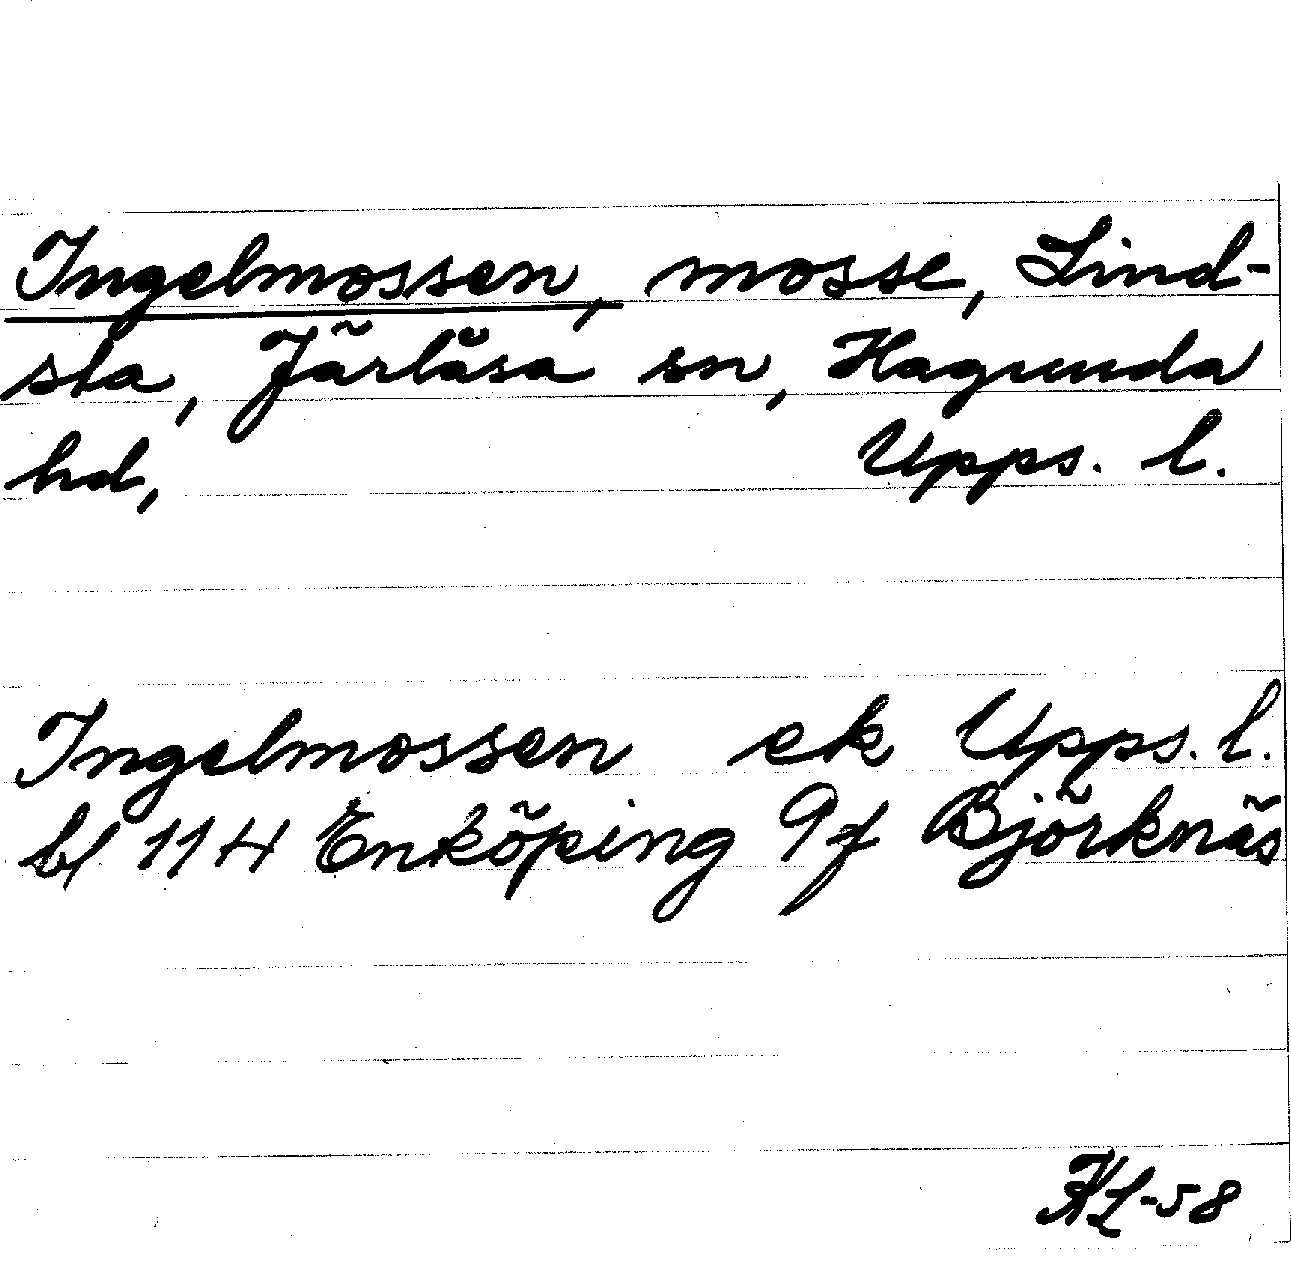 Ingelmossen, mosse, Lind-
sta, Järlåsa sn, Hagunda
hd, Upps. l.
Ingelmossen ek Upps. l.
bl 114 Enköping 9f Björknäs
KL-58